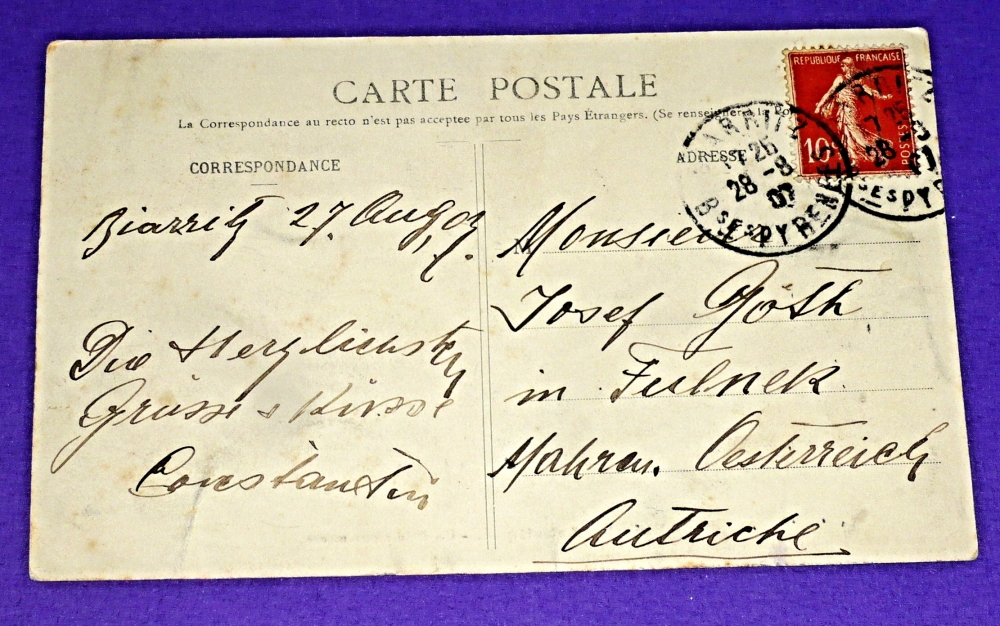 CARTE POSTALE
La Correspondance au recto n'est pas acceptée par tous les Pays Étrangers. (Se renseigner à la
CORRESPONDANCE
ADRESSE
REPUBLIQUE FRANÇAISE
10
POSTES
BIARRITZ
25
28 -8
07
BSES PYRENEES
Biarritz 27. Aug. 07.
Die Herzlichsten
Grüsse & Küsse
Constantin
Monsieur
Josef Göth
in Fulnek.
Mähren. Oesterreich
Autriche